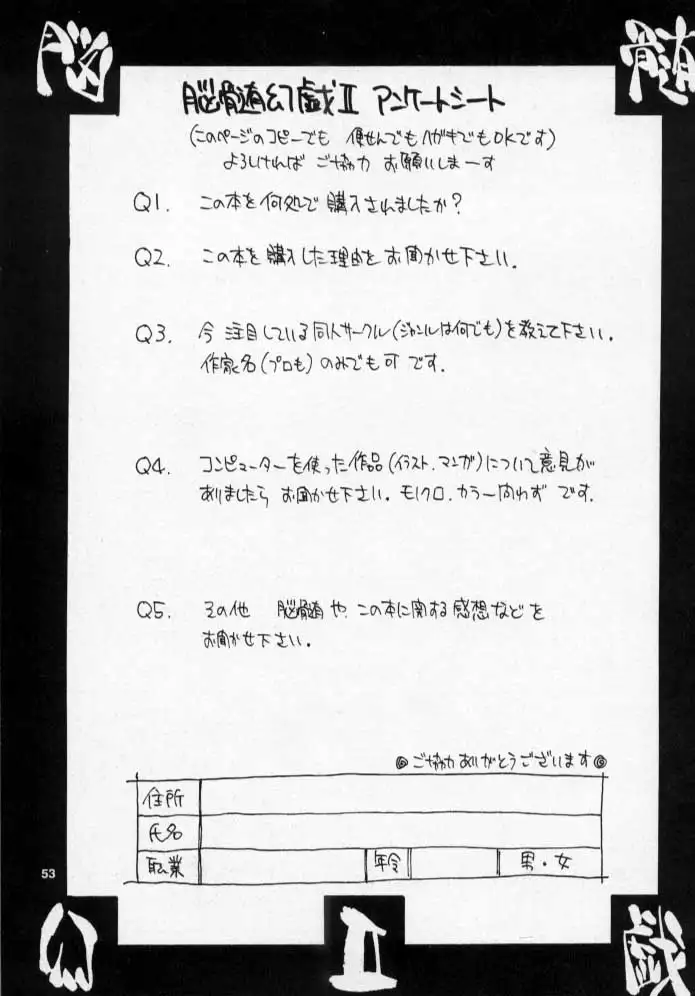 脳 髄
脳髄幻戯Ⅱ アンケートシート
(このページのコピーでも 便せんでもハガキでもOKです)
よろしければ ご協力 お願いしまーす
Q1. この本を何処で購入されましたか?
Q2. この本を購入した理由をお聞かせ下さい.
Q3. 今注目している同人サークル(ジャンルは何でも)を教えて下さい.
作家名(プロも)のみでも可です.
Q4. コンピューターを使った作品(イラスト.マンガ)について意見が
ありましたら お聞かせ下さい.モノクロ.カラー問わず です.
Q5. その他 脳髄や.この本に関する感想などを
お聞かせ下さい.
◎ご協力ありがとうございます◎
住所
氏名
職業 年令 男・女
53
幻 Ⅱ 戯